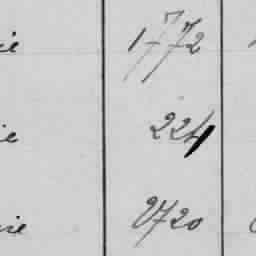 ie 1772
ie 224
ie 2720